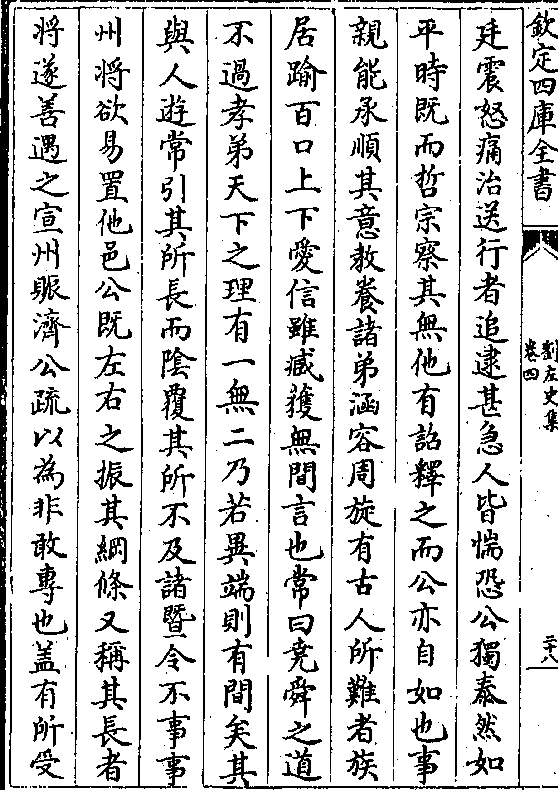 欽定四庫全書
劉左史集
卷四
二十八
廷震怒痛治送行者追逮甚急人皆惴恐公獨泰然如
平時既而哲宗察其無他有詔釋之而公亦自如也事
親能承順其意教養諸弟涵容周旋有古人所難者族
居踰百口上下愛信雖臧獲無間言也常曰堯舜之道
不過孝弟天下之理有一無二乃若異端則有間矣其
與人遊常引其所長而陰覆其所不及諸暨令不事事
州將欲易置他邑公既左右之振其綱條又稱其長者
將遂善遇之宣州賑濟公疏以為非敢專也盖有所受